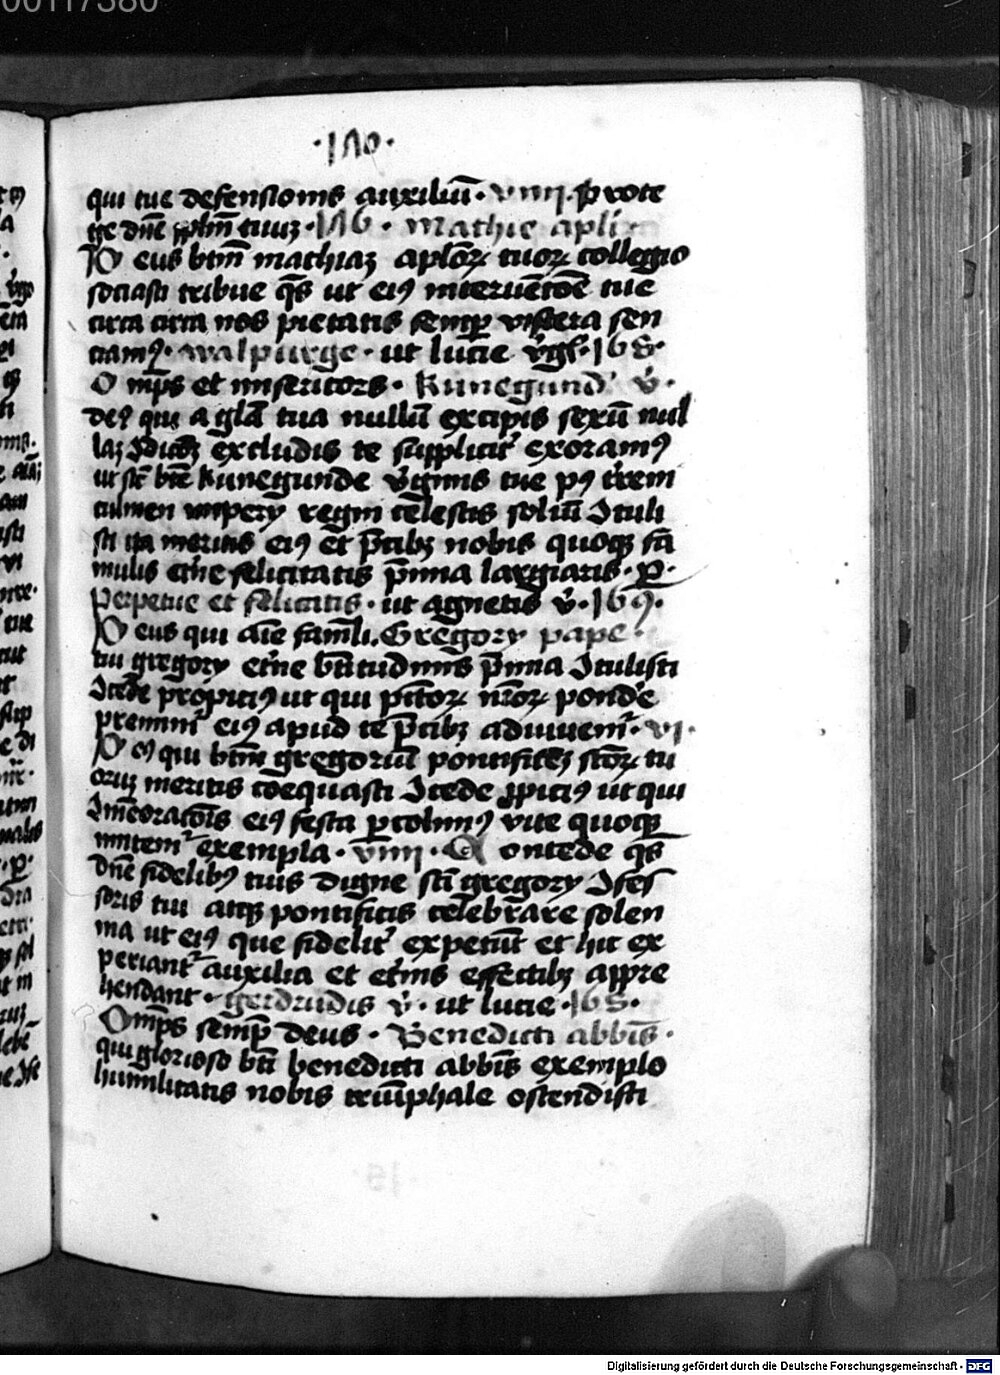 00117380
·170·
qui tue defensionis auxiliū · vıııı · prote
ge dn̄e pplm̄ tuuz · 176 · mathie apli
Deus btm̄ mathiaz aplōꝝ tuoꝝ collegio
sociasti tribue qs̄ ut eiꝯ interuētōe tue
circa circa nos pietatis semꝑ viscera sen
ciamꝯ · walpurge · ut lucie v̄gī · 168 ·
O mp̄s et misericors · Kunegund' v̄ ·
deꝯ qui a glā tua nullū excipis sexū nul
laz excludis te suppliciť exoramꝯ
ut sic̄ btē kunegunde v̄ginis tue pꝯ trēm
culmen impery regni celestis soliū Jtuli
sti ita meritis eiꝯ et p̄cibꝫ nobis quoqꝫ fā
mulis et̄ne felicitatis p̄mia largiaris · p̲ ·
perpetue et felicitatis · ut agnetis v̄ · 169 ·
Deus qui aīe famli · Gregory pape ·
tui gregory et̄ne btītudinis p̄mia Jtulisti
propiciꝯ ut qui pctōꝝ nr̄oꝝ pond'e
premimr̄ eiꝯ apud te p̄cibꝫ adiuuem̄ · vı ·
Deꝯ qui btm̄ gregoriū pontificez sctōꝝ tu
oruz meritis coequasti 9cede ꝓpiciꝯ ut qui
9mēoracōis eiꝯ festa ꝑcolimꝯ vite quoqꝫ
imitemr̄ exempla · vıııı · Concede qs̄
dn̄e fidelibꝯ tuis digne scti gregory 9fes
soris tui atqꝫ pontificis celebrare solen
nia ut eiꝯ que fideliť expetūt et hic ex
periant̄ auxilia et et̄nis effectibꝫ appre
hendant · gerdrudis v̄ · ut lucie · 168 ·
Omp̄s semp̄ deus · Benedicti abbīs ·
qui glorioso bti benedicti abbīs exemplo
humilitatis nobis triūphale ostendisti
Digitalisierung gefördert durch die Deutsche Forschungsgemeinschaft · DFG